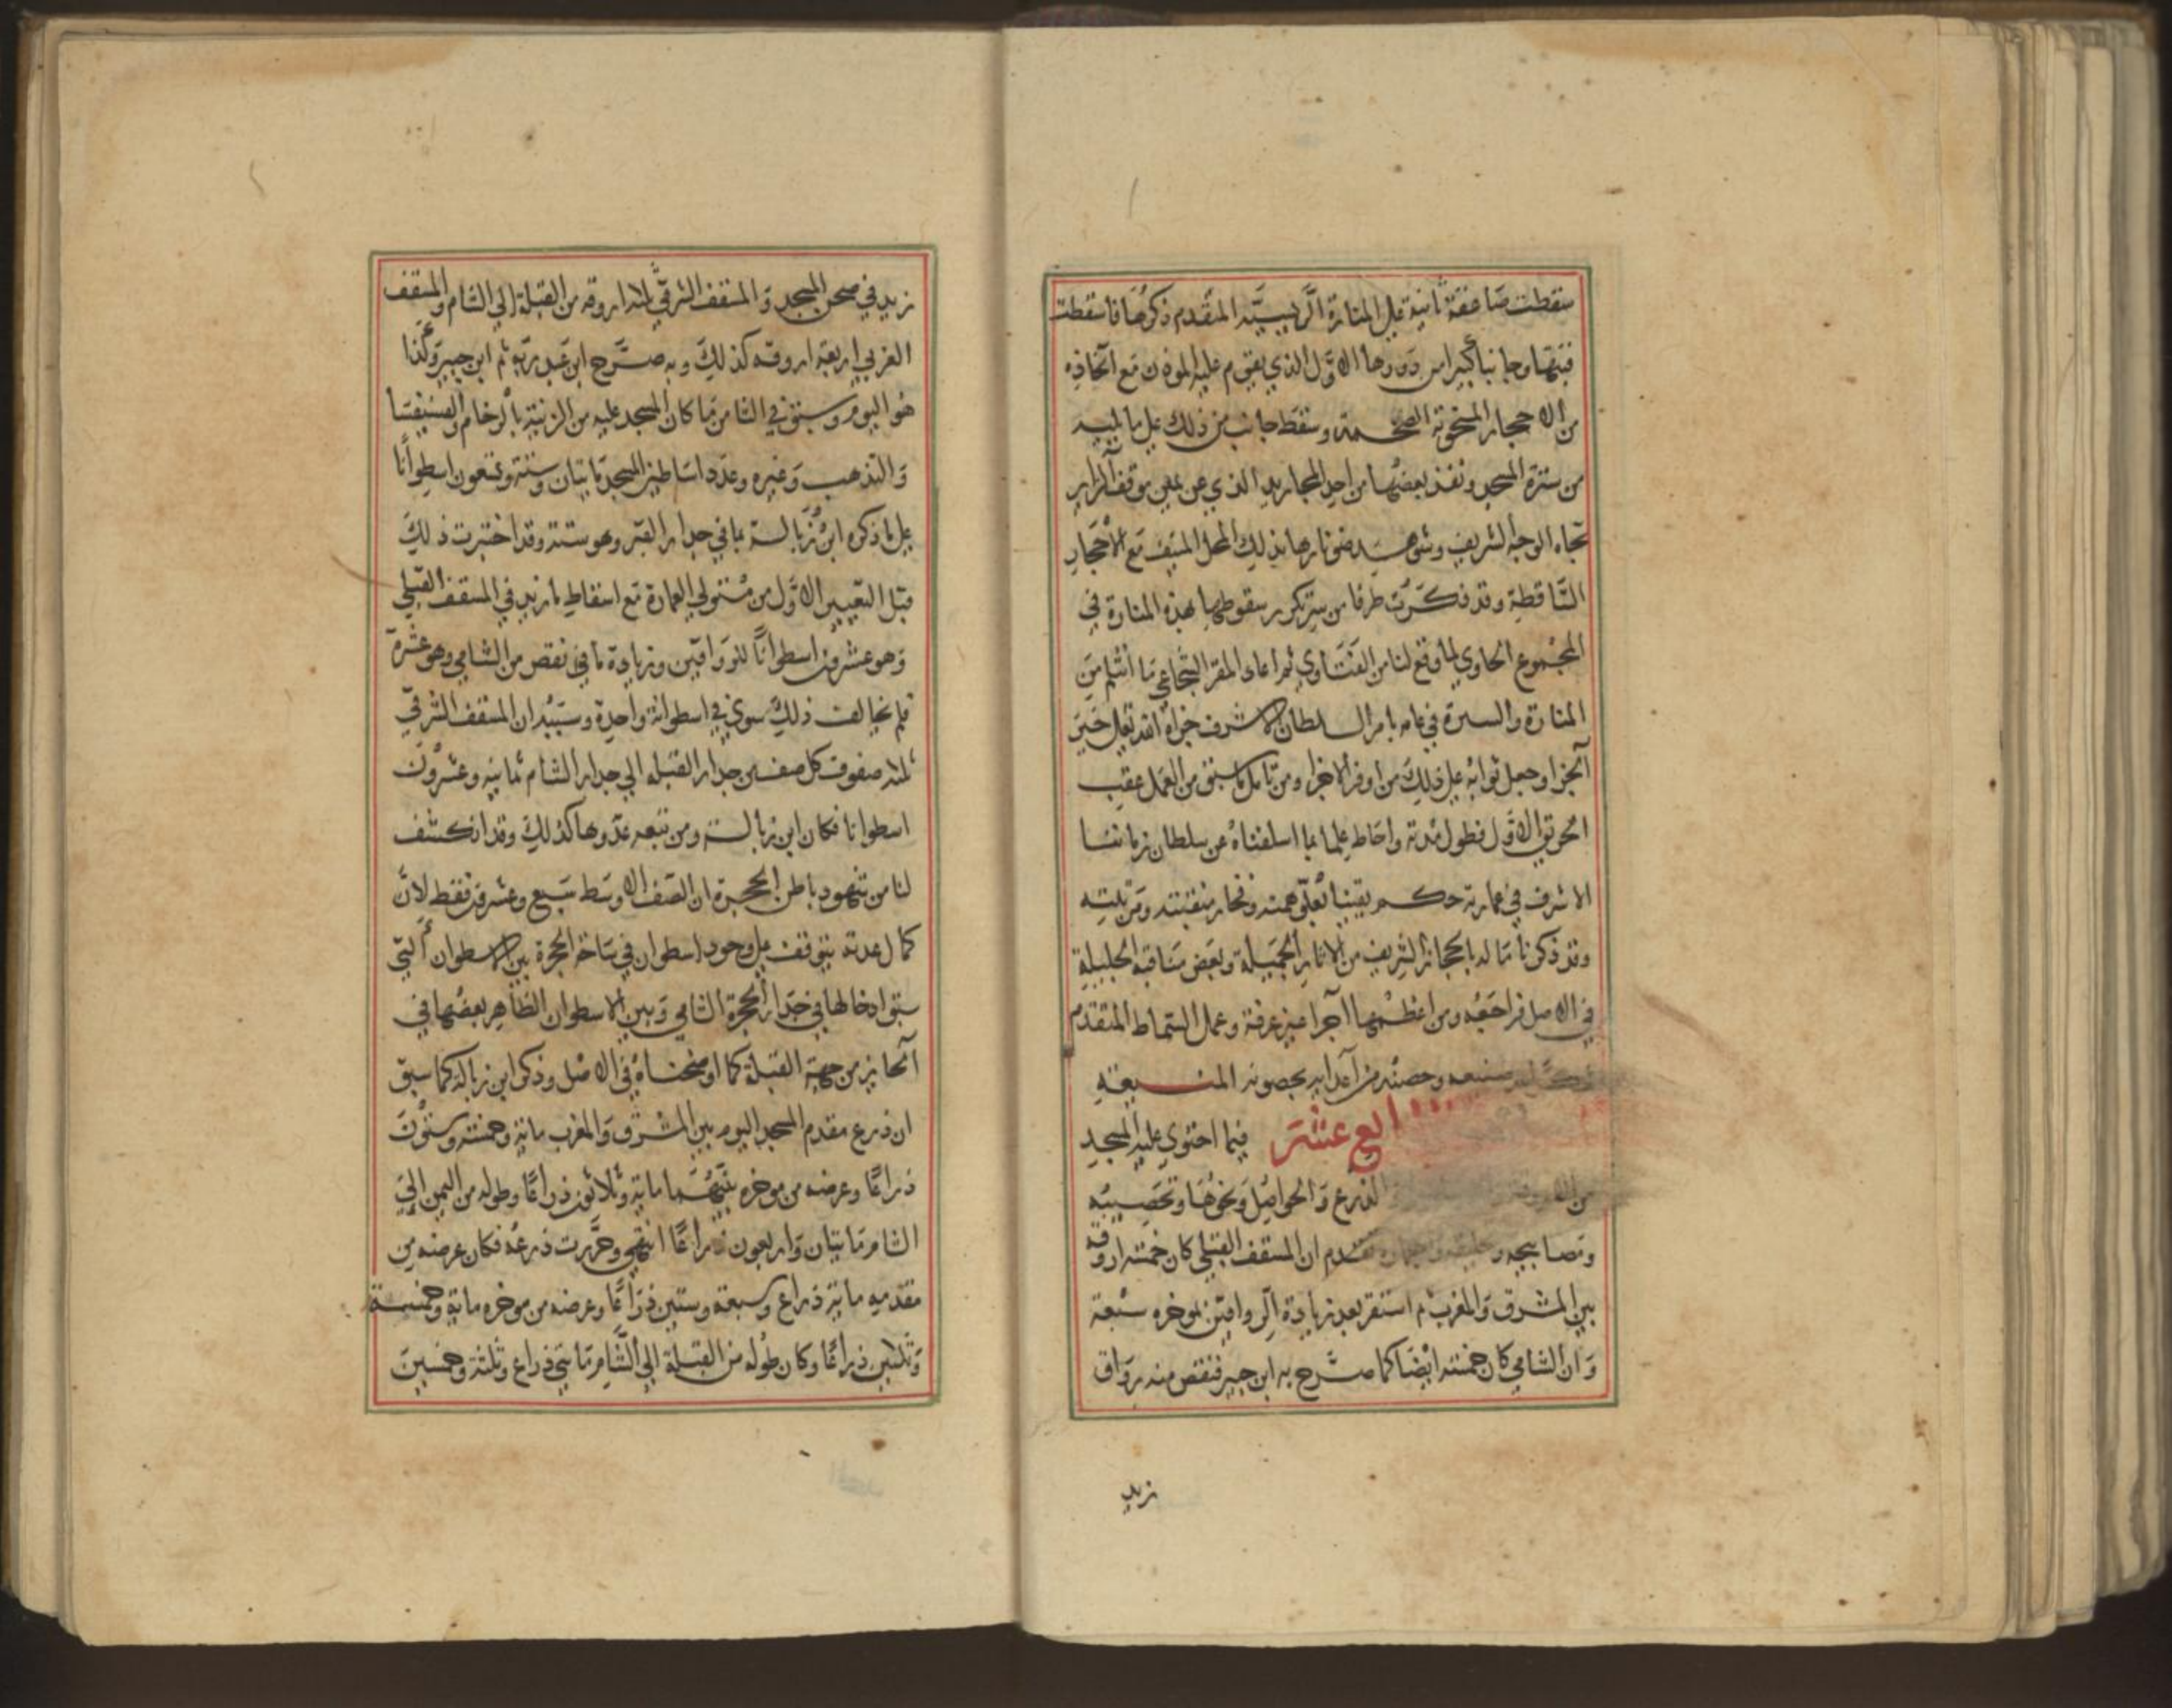 سقطت صاعقة ثانية علي المنارة الرييسيّه المتقدم ذكرها فاسقطت
قبتها وجانبا كبيرا من دورها الاول الذي يقوم عليه الموذن مع اتخاذه
من الاحجار المنحوتة الضخمة وسقط جانب من ذلك علي ما يليه
من سترة المسجد ونفذ بعضها من احد المجاريد الذي عن يمين موقف الزاير
تجاه الوجه الشريف وشوهد ضو نارها بذلك المحل المنيف مع الاحجار
السّاقطة وقد ذكرت طرفا من سر تكرر سقوطها بهذه المنارة في
المجموع الحاوي لما وقع لنا من الفتاوي ثم اعاد المقر الشجاعي ما انثلم من
المنارة والسترة في عامه بامر السلطان الاشرف جزاه الله تعالي خير
الجزا وجعل ثوابه علي ذلك من اوفر الاجزا ومن تامل ما سبق من العمل عقيب
الحريق الاول فطول مدته واحاط علما بما اسلفناه عن سلطان زماننا
الاشرف في عمارته حكم يقينا بعلي همته وفخار منقبته ومرتبته
وقد ذكرنا ما له بالحجاز الشريف من الاثار الجميلة وبعض مناقبه الجليلة
في الاصل فراجعه ومن اعظمها اجرا عين عرفة وعمل السماط المتقدم
صنعه وحصنه من اعدايه بحصونه المنيعة
ابع عشر فيما احتوي عليه المسجد
من الاروقة الذرع والحواصل ونحوها وتحصيبه
ومصابيحه تقدم ان المسقف القبلي كان خمسة اروقة
بين المشرق والمغرب ثم استقر بعد زيادة الرواقين بموخره سبعة
وان الشامي كان خمسة ايضا كما صرح به ابن جبير فنقص منه رواق
زيد
زيد في صحن المسجد والمسقف الشرقي ثلثة اروقه من القبلة الي الشام والمسقف
الغربي اربعة اروقه كذلك وبه صرح ابن عبد ربه ثم ابن جبير وكذا
هو اليوم وسبق في الثامن ما كان المسجد عليه من الزينة بالرخام والفسيفسا
والتذهيب وغيره وعدد اساطين المسجد مايتان وستة وتسعون اسطوانا
علي ما ذكره ابن زبالة بما في جدار القبر وهو ستة وقد اختبرت ذلك
قبل التغيير الاول من متولي العمارة مع اسقاط ما زيد في المسقف القبلي
وهو عشرون اسطوانا للرواقين وزيادة ما نقص من الشامي وهو عشرة
فلم يخالف ذلك سوي في اسطوانة واحدة وسببه ان المسقف الشرقي
ثلثه صفوف كل صف من جدار القبله الي جدار الشام ثمانيه وعشرون
اسطوانا فكان ابن زبالة ومن تبعه عدوها كذلك وقد انكشف
لنا من شهود باطن الحجرة ان الصف الاوسط سبع وعشرون فقط لان
كمال عدته يتوقف علي وجود اسطوان في ساحة الحجرة بين الاسطوان التي
سبق ادخالها في جدار الحجرة الشامي وبين الاسطوان الظاهر بعضها في
الحايز من جهة القبلة كما اوضحناه في الاصل وذكر ابن زبالة كما سبق
ان ذرع مقدم المسجد اليوم بين المشرق والمغرب ماية وخمسة وستون
ذراعا وعرضه من موخره بينهما ماية وثلاثون ذراعا وطوله من اليمن الي
الشام مايتان واربعون ذراعا انتهي وحررت ذرعه فكان عرضه من
مقدمه ماية ذراع وسبعة وستين ذراعا وعرضه من موخره ماية وخمسة
وثلثين ذراعا وكان طوله من القبلة الي الشام مايتي ذراع وثلثة وخمسين